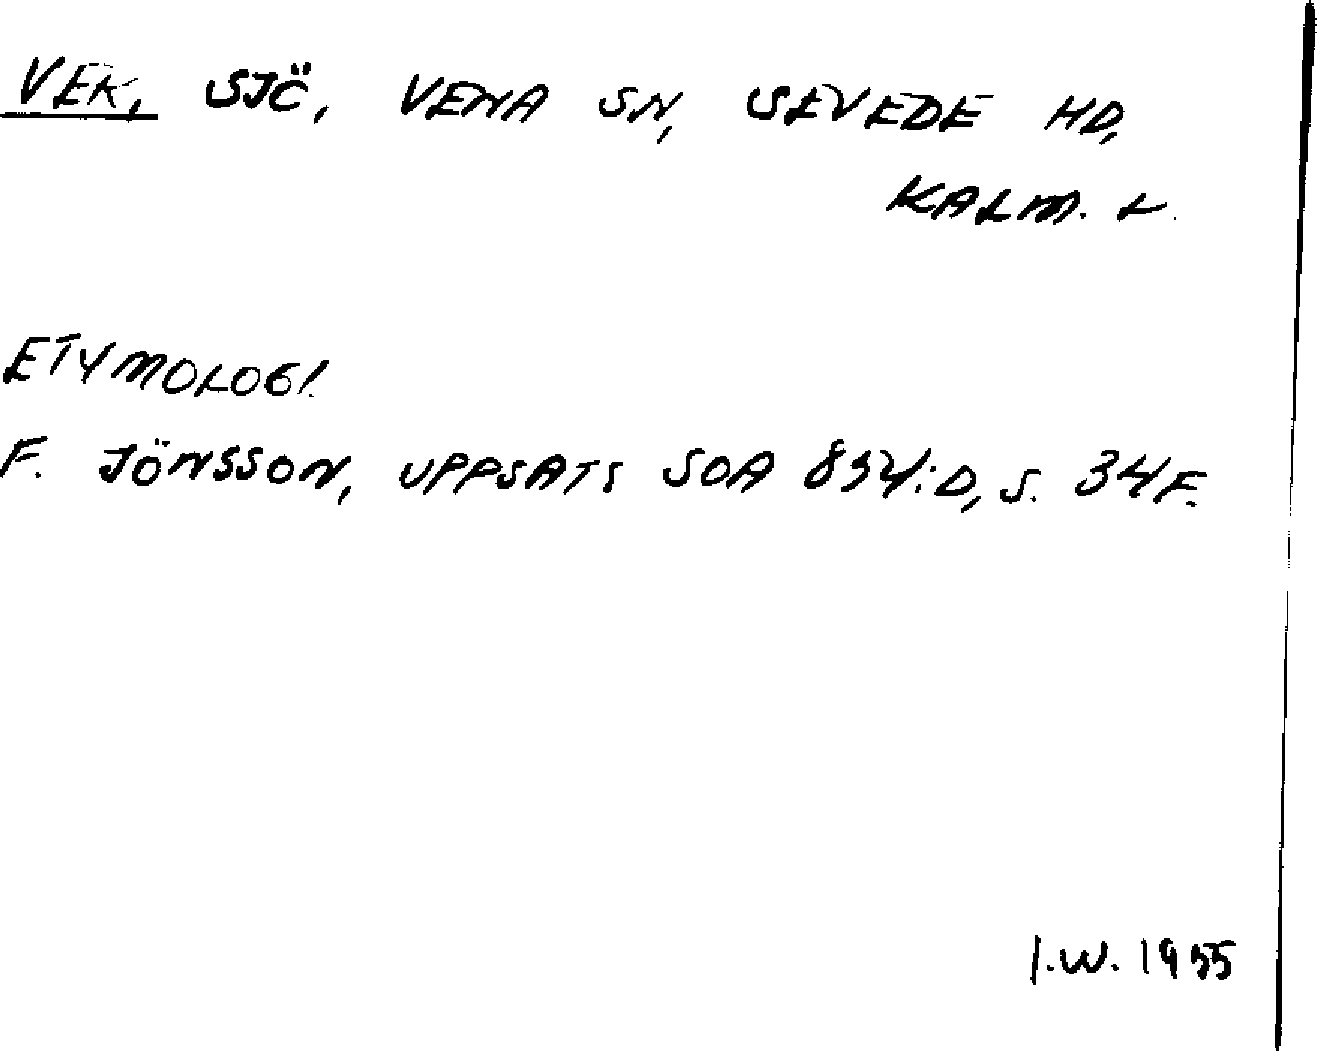 VEK, SJÖ, VENA SN, SEVEDE HD,
KALM. L.
ETYMOLOGI.
F. JÖNSSON, UPPSATS SOA 834:D, S. 34 F.
I.W. 1955